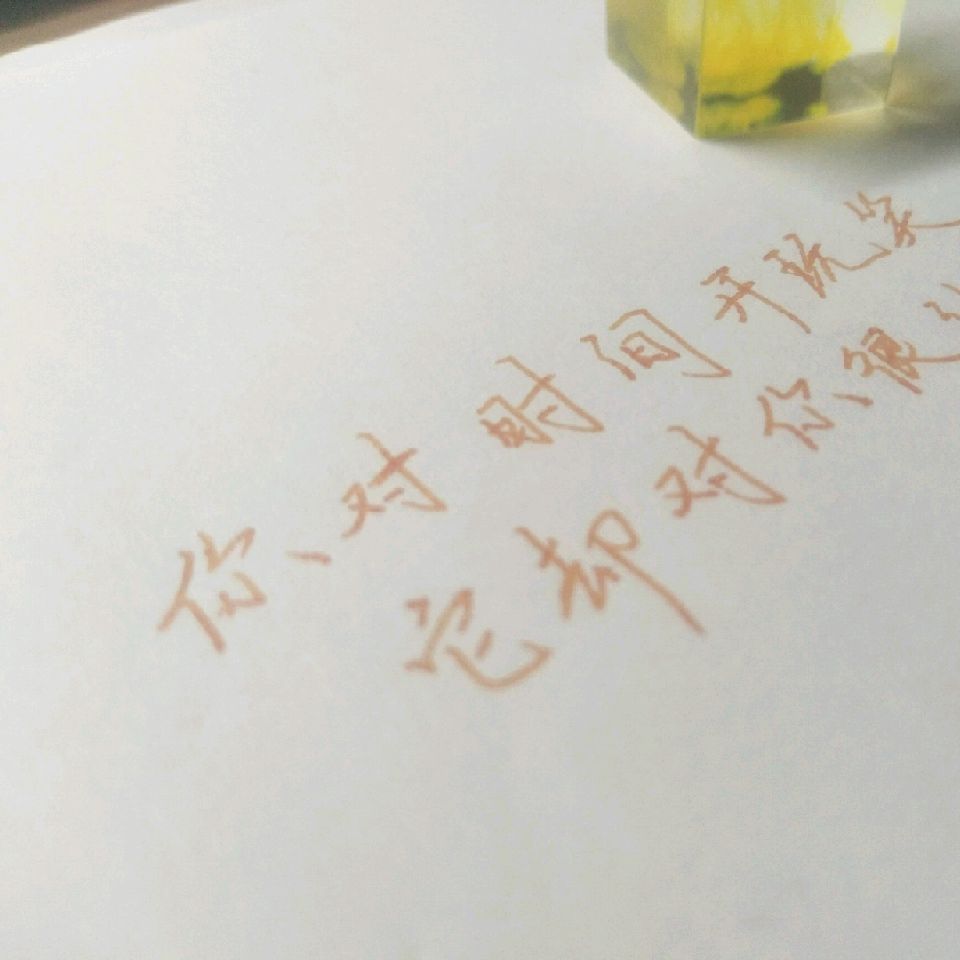 你对时间开玩笑
它却对你很